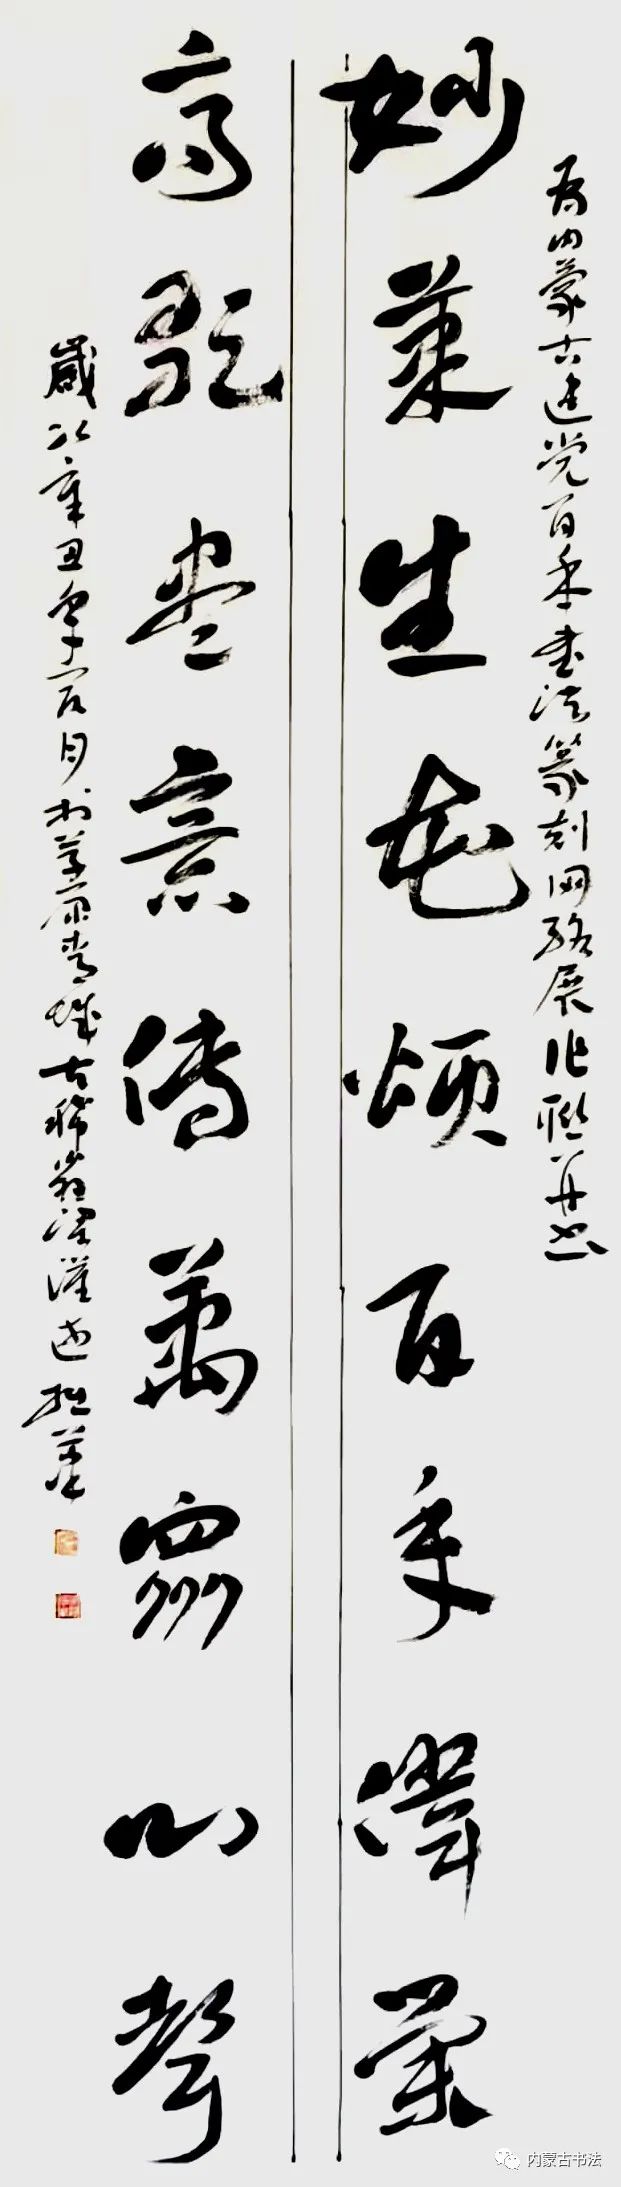 为内蒙古建党百年书法篆刻网络展作联并书
妙笔生花颂百年伟业
高歌尽意传万众心声
岁次辛丑年 月于 青城古稀翁 汉 拙笔
内蒙古书法